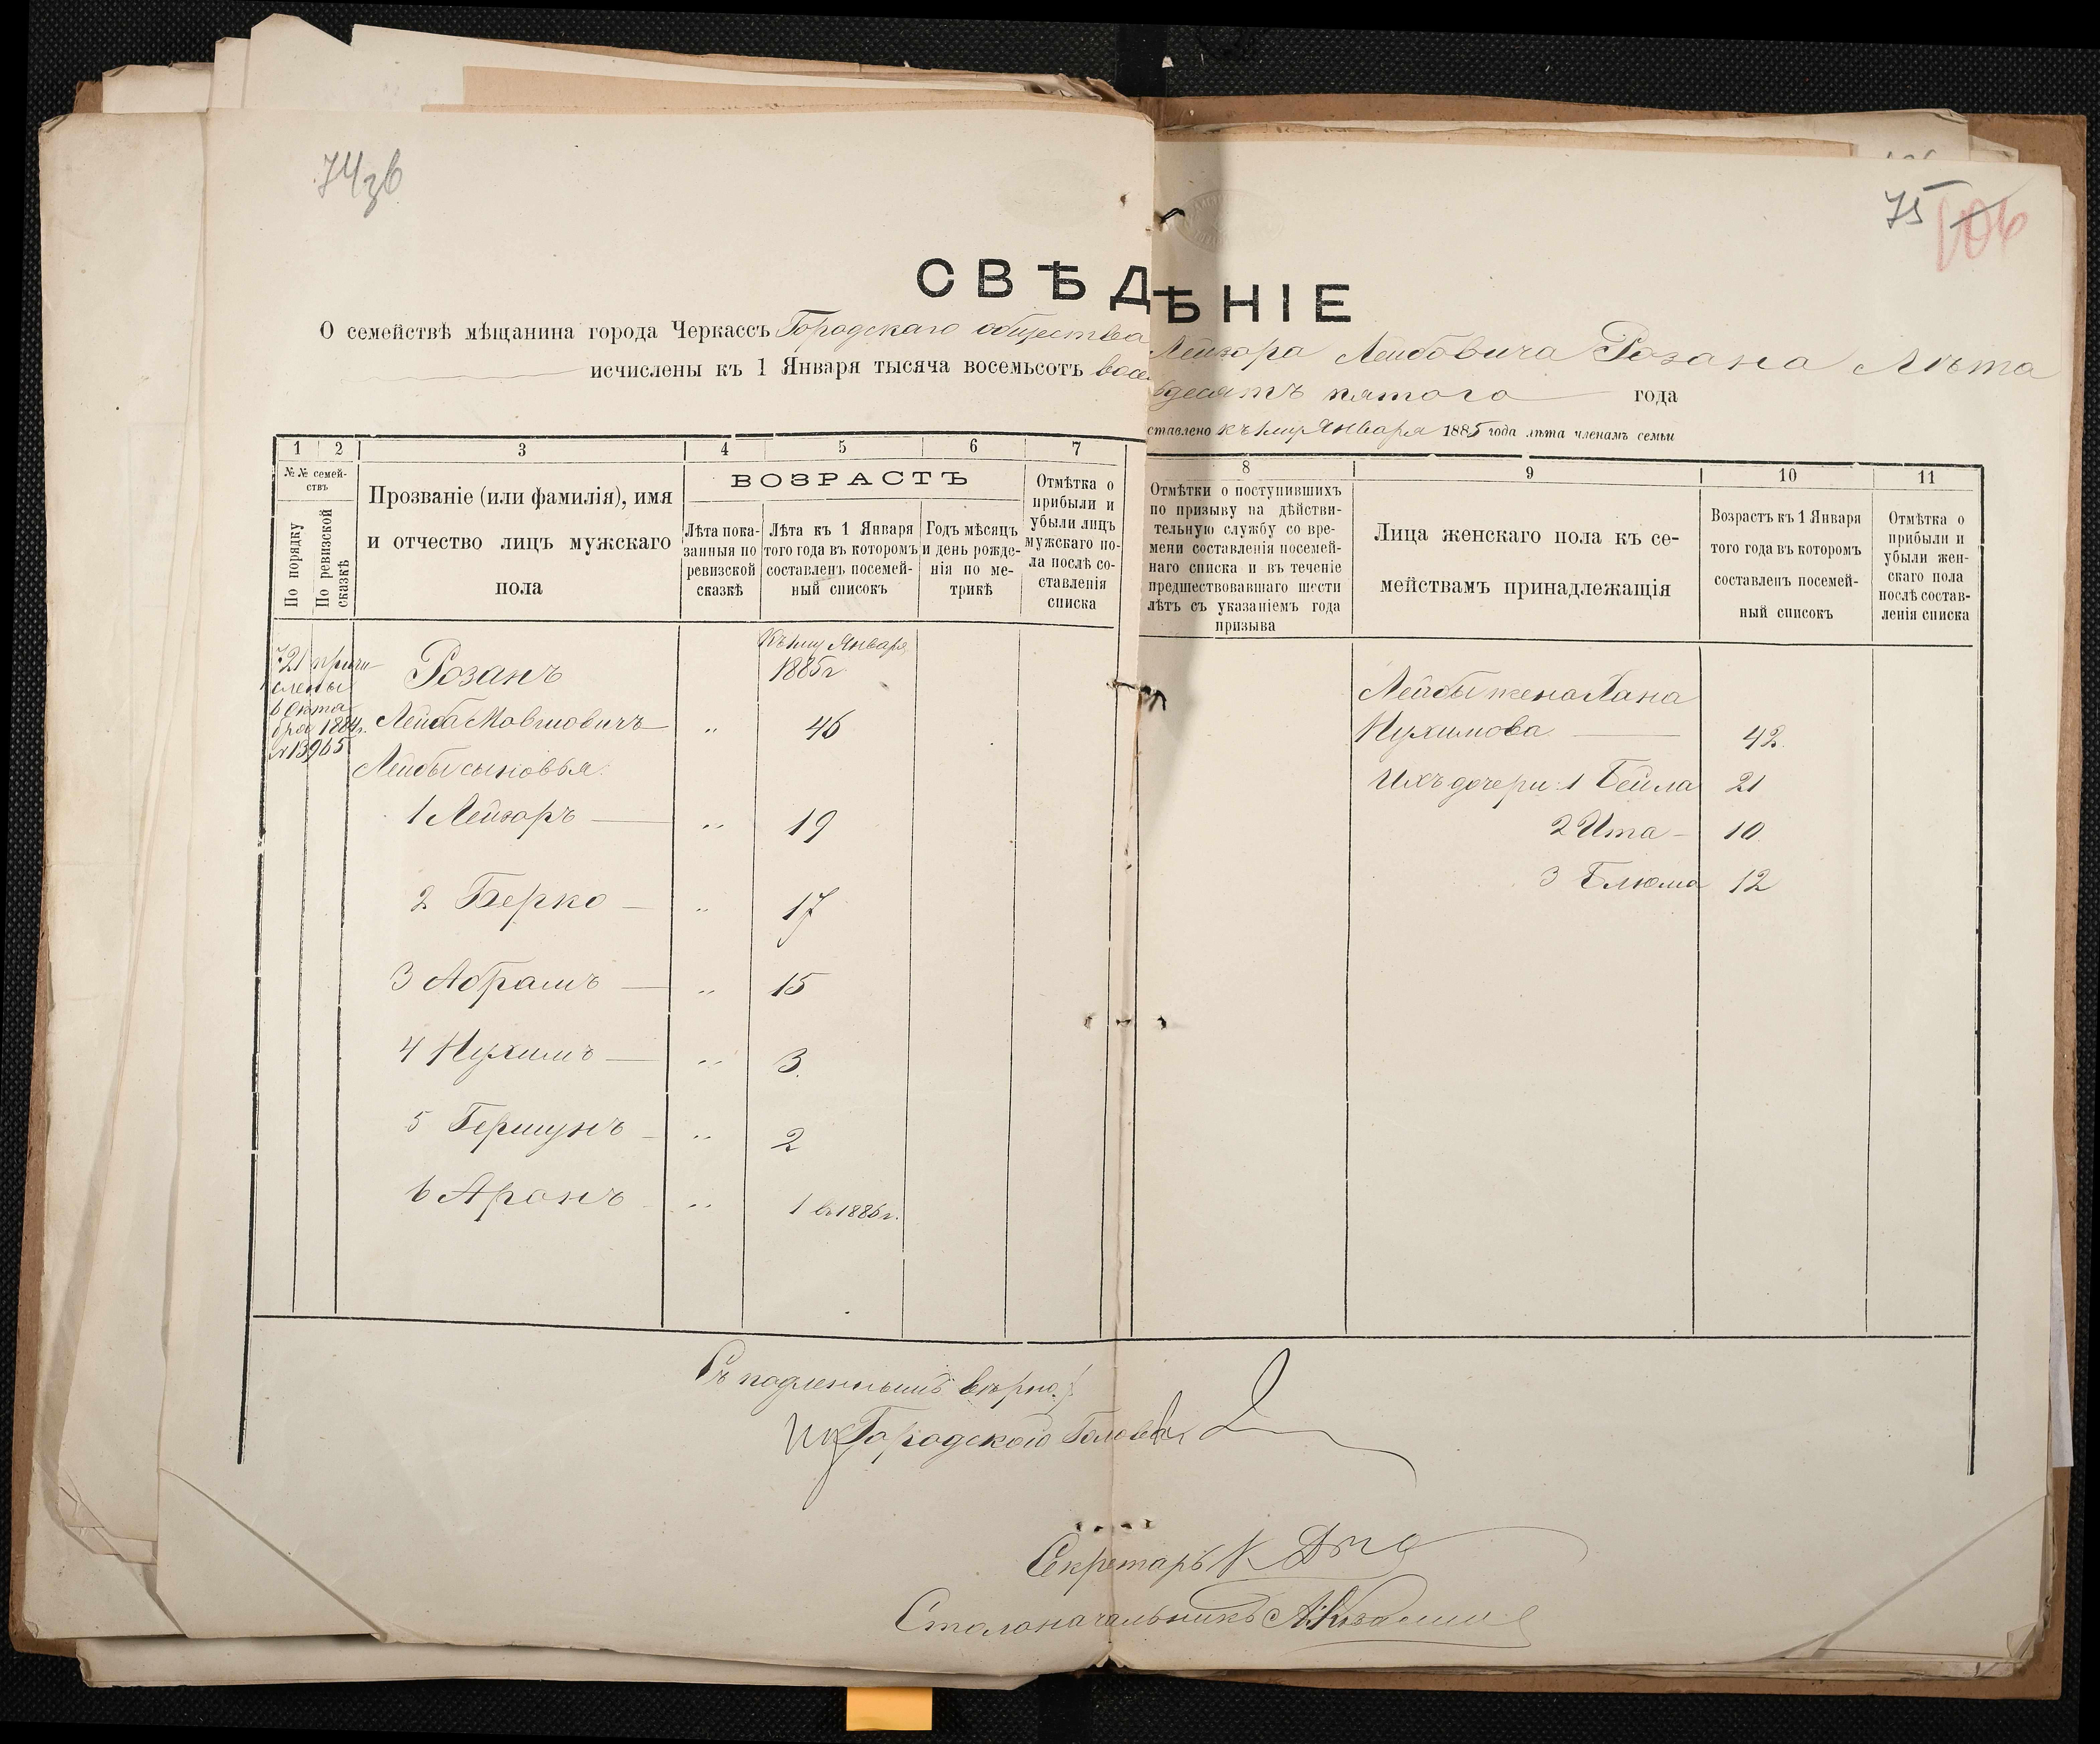 74зв
75
106
СВѢДѢНІЕ
О семействѣ мѣщанина города Черкассъ Городскаго общества Лейзора Лейбовича Розана Лѣта
исчислены къ 1 Января тысяча восемьсотъ восемьдесятъ пятого года
ставлено къ 1му Января 1885 года лѣта членамъ семьи
1
2
3
4
5
6
7
8
9
10
11
№№ семей-
ствъ
По порядку
По ревизской
сказкѣ
Прозваніе (или фамилія), имя
и отчество лицъ мужскаго
пола
ВОЗРАСТЪ
Лѣта пока-
занныя по
ревизской
сказкѣ
Лѣта къ 1 Января
того года въ котором
составленъ посемей-
ный списокъ
Годъ мѣсяцъ
и день рожде-
нія по ме-
трикѣ
Отмѣтка о
прибыли и
убыли лицъ
мужскаго по-
ла послѣ со-
ставленія
списка
Отмѣтки о поступившихъ
по призыву на дѣйстви-
тельную службу со вре-
мени составленія посемей-
наго списка и въ теченіе
предшествовавшаго шести
лѣтъ съ указаніемъ года
призыва
Лица женскаго пола къ се-
мействамъ принадлежащія
Возрастъ къ 1 Января
того года въ котором
составленъ посемей-
ный списокъ
Отмѣтка о
прибыли и
убыли жен-
скаго пола
послѣ состав-
ленія списка
721 причи
слены
6 Октя
бря 1884г.
№13965
Розанъ
Къ 1му Января
1885г
Лейба Мовшовичъ „ 46
Лейбы сыновья:
1 Лейзоръ „ 19
2 Берко „ 17
3 Абрамъ „ 15
4 Нухимъ „ 3.
5 Гершунъ „ 2
6 Аронъ „ 1 въ 1886г.
Лейбы жена Хана
Нухимова 42.
Ихъ дочери: 1 Бейла 21
2 Ита 10
3 Блюма 12
Съ подленнымъ вѣрно:
Городского Головы
Секретарь К
Столоначальникъ А.